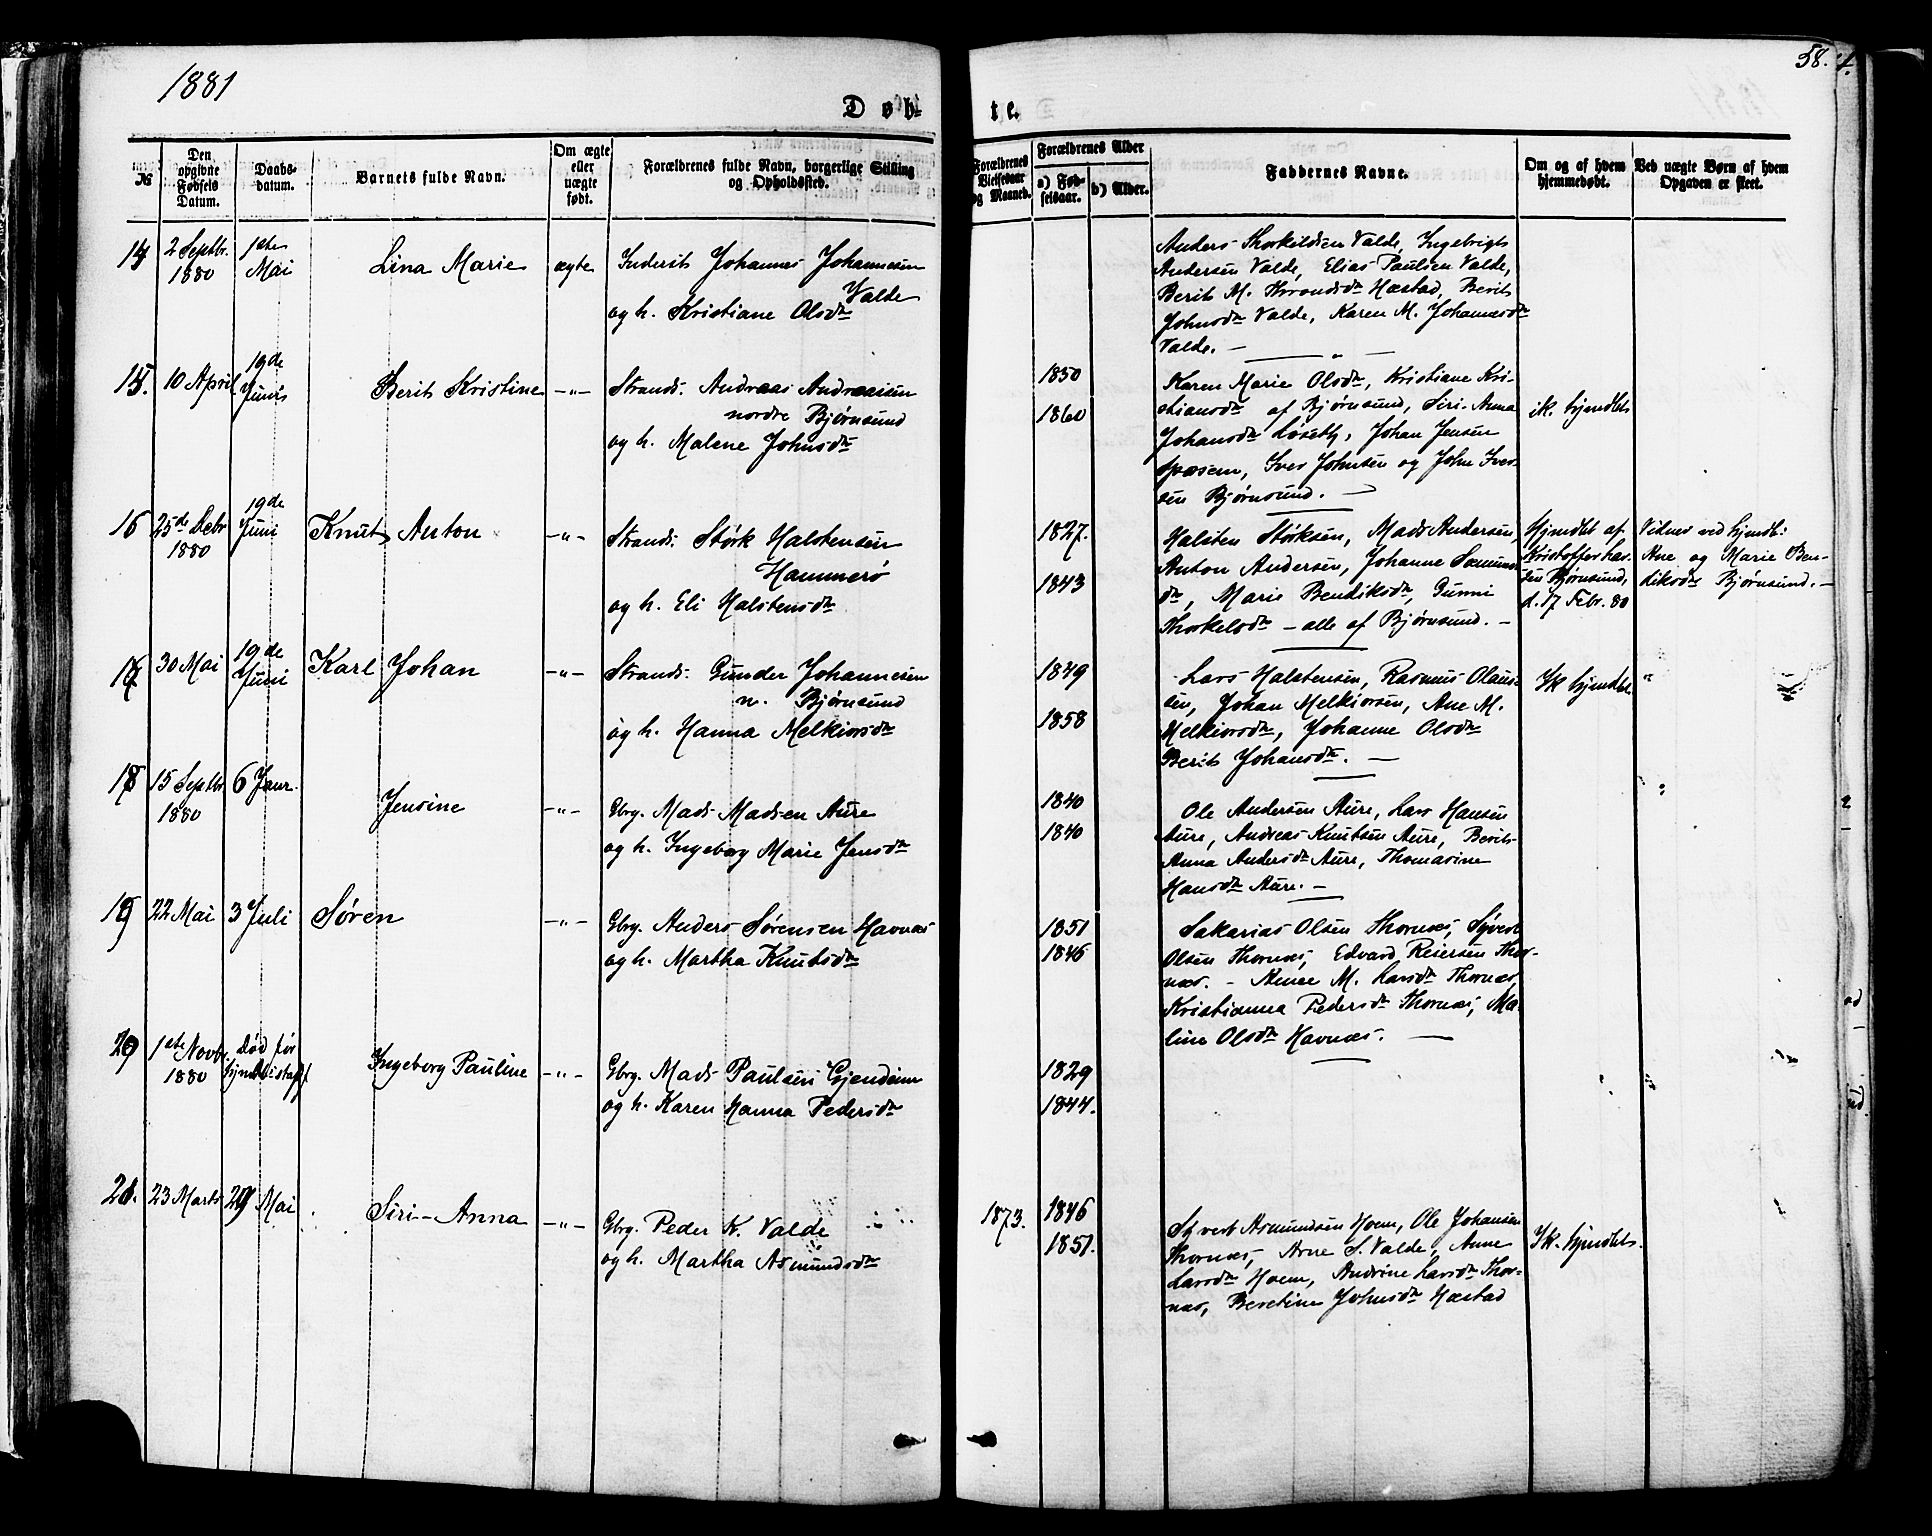 1881
58.
D ø b-
t e.
№
Den opgivne Fødsels Datum.
Daabs-datum.
Barnets fulde Navn.
Om ægte eller uægte født.
Forældrenes fulde Navn, borgerlige Stilling og Opholdssted.
Forældrenes Vielsesaar og Maaned.
Forældrenes Alder
a) Fødselsaar.
b) Alder.
Faddernes Navne.
Om og af hvem hjemmedøbt.
Ved uægte Børn af hvem Opgaven er skeet.
14
2 Septbr. 1880
1ste Mai
Lina Marie
ægte
Inderst Johannes Johannesen
Valde
og h. Kristiane Olsdtr
Anders Thorkildsen Valde, Ingebrigt
Andersen Valde, Elias Paulsen Valde,
Berit M. Trondsdtr Hæstad, Berit
Johnsdtr Valde, Karen M. Johannesdtr
Valde. —
15.
10 April
19de Juni
Berit Kristine
-„-
Strands. Andreas Andreasen
nordre Bjørnsund
og h. Malene Johnsdtr
1850
1860
Karen Marie Olsdtr, Kristiane Kri-
stiansdtr af Bjørnsund, Siri-Anna
Johansdtr Løseth, Johan Jensen
Iver Johnsen og John Iver-
sen Bjørnsund. —
ik. hjmdbt
16
25de Debr 1880
19de Juni
Knut Anton
-„-
Strands. Størk Halstensen
Hammerø
og h. Eli Halstensdtr
1827.
1843
Halsten Størksen, Mads Andersen,
Anton Andersen, Johanne Sæmunds-
dtr, Marie Bendiksdtr, Gunni
Thorkelsdtr — alle af Bjørnsund. —
Hjmdbt af
Kristoffer Lar-
sen Bjørnsund,
d. 17 Febr. 80
Vidner ved hjmdb:
Ane og Marie Ben-
diksdtr Bjørnsund. —
17
30 Mai
19de Juni
Karl Johan
-„-
Strands. Gunder Johannesen
n. Bjørnsund
og h. Hanna Melkiorsdtr
1849
1858
Lars Halstensen, Rasmus Olaus-
sen, Johan Melkiorsen, Ane M.
Melkiorsdtr, Johanne Olsdtr
Berit Johansdtr. —
Ik hjmdbt.
„
18
15 Septbr 1880
6 Janr.
Jensine
-„-
Gbrg. Mads Madsen Aure
og h. Ingeborg Marie Jensdtr
1840
1840
Ole Andersen Aure, Lars Hansen
Aure, Andreas Knutsen Aure, Berit-
Anna Andersdtr Aure, Thomasine
Hansdtr Aure. —
19
22 Mai
3 Juli
Søren
-„-
Gbrg. Anders Sørensen Havnæs
og h. Martha Knutsdtr
1851
1846
Sakarias Olsen Thornæs, Syvert
Olsen Thornæs, Edvard Reiersen Thor-
næs. — Anne M. Larsdtr Thornæs,
Kristianna Pedersdtr Thornæs, Ma-
line Olsdtr Havnæs. —
20
1ste Novbr. 1880
Død før
Ingeborg Pauline
-„-
Gbrg. Mads Paulsen Gjendem
og h. Karen Hanna Pedersdtr
1829
1844.
21.
23 Marts
29 Mai
Siri-Anna
-„-
Gbrg. Peder K. Valde
og h. Martha Asmundsdtr
1873.
1846
1851.
Syvert Asmundsen Hoem, Ole Johansen
Thornæs, Arne S. Valde, Anne
Larsdtr Hoem, Andrine Larsdtr Thor-
næs, Beretine Johnsdtr Hæstad
Ik. hjmdbt.